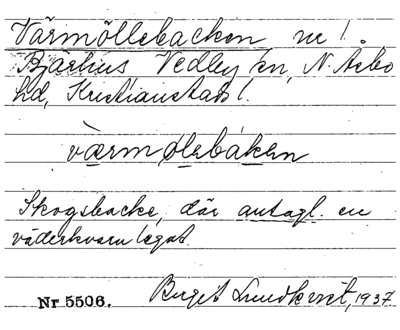 Värmöllebacken ne!.
Bjärlius Vedby sn, N. Åsbo
hd, Kristianstads l.
værmølebakən
Skogsbacke, där antagl. en
väderkvarn legat.
Nr 5506. Birgit Lundkvist, 1937